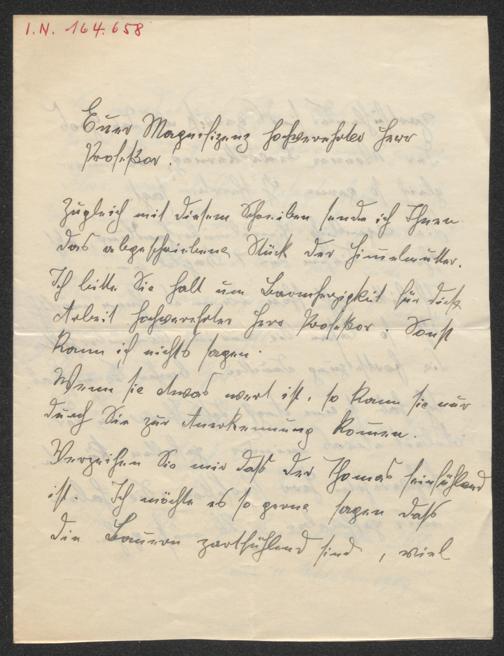 I.N. 164.658
Euer Magnifizenz hochverehrter Herr
Professor.
Zugleich mit diesem Schreiben sende ich Ihnen
das abgeschriebene Stück der Himmelmutter.
Ich bitte Sie halt um Barmherzigkeit für diese
Arbeit hochverehrter Herr Professor. Sonst
kann ich nichts sagen.
Wenn sie etwas wert ist, so kann sie nur
durch Sie zur Anerkennung kommen.
Verzeihen Sie mir daß der Thomas feinfühlend
ist. Ich möchte es so gerne sagen daß
die Bauern zartfühlend sind, viel